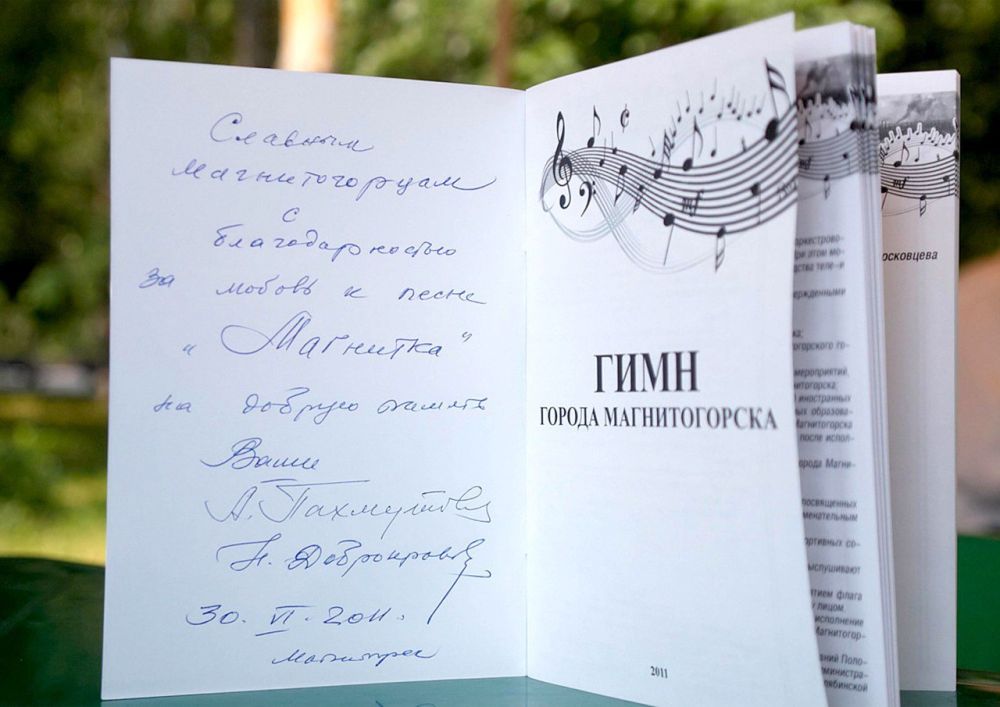 Славным
Магнитогорцам
с
благодарностью
за любовь к песне
"Магнитка"
на добрую память
Ваши
А. Пахмутова
Н. Добронравов
30. VI. 2011.
Магнитогорск
ГИМН
ГОРОДА МАГНИТОГОРСКА
2011
mf
mf
mf
оркестрово-
При этом мо-
дства теле-и
ержденными
ка:
огорского го-
мероприятий,
нитогорска;
иностранных
ых образова-
Магнитогорска
после испол-
орода Магни-
посвященных
менательным
ортивных со-
ыслушивают
тием флага
лицом
исполнение
Магнитогор-
ний Поло-
администра-
лябинской
осковцева